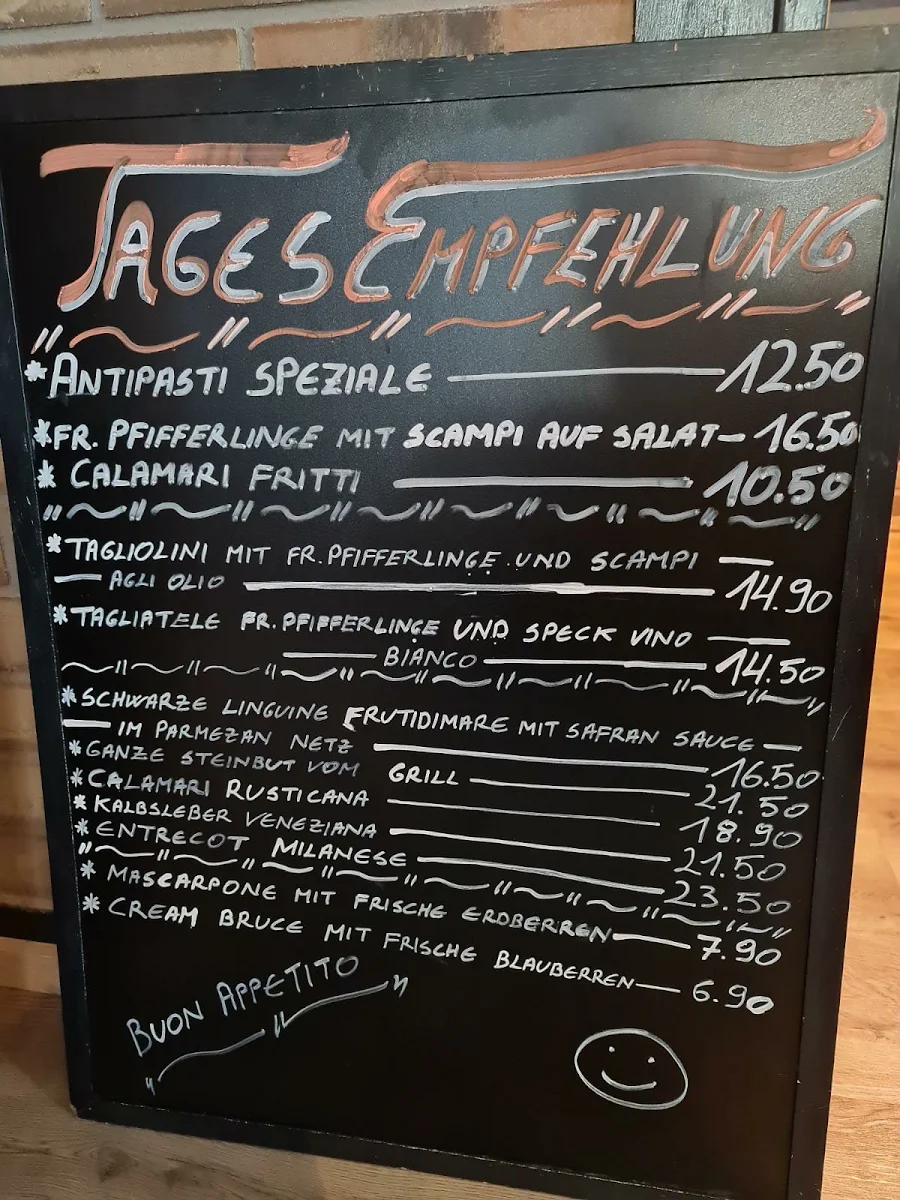 TAGESEMPFEHLUNG
*ANTIPASTI SPEZIALE — 12.50
*FR. PFIFFERLINGE MIT SCAMPI AUF SALAT — 16.50
* CALAMARI FRITTI — 10.50
*TAGLIOLINI MIT FR. PFIFFERLINGE UND SCAMPI —
— AGLI OLIO — 14.90
*TAGLIATELE FR. PFIFFERLINGE UND SPECK VINO —
— BIANCO — 14.50
*SCHWARZE LINGUINE FRUTIDIMARE MIT SAFRAN SAUCE —
— IM PARMEZAN NETZ — 16.50
*GANZE STEINBUT VOM GRILL — 21.50
*CALAMARI RUSTICANA — 18.90
*KALBSLEBER VENEZIANA — 21.50
*ENTRECOT MILANESE — 23.50
* MASCARPONE MIT FRISCHE ERDBERREN — 7.90
* CREAM BRUCE MIT FRISCHE BLAUBERREN — 6.90
BUON APPETITO